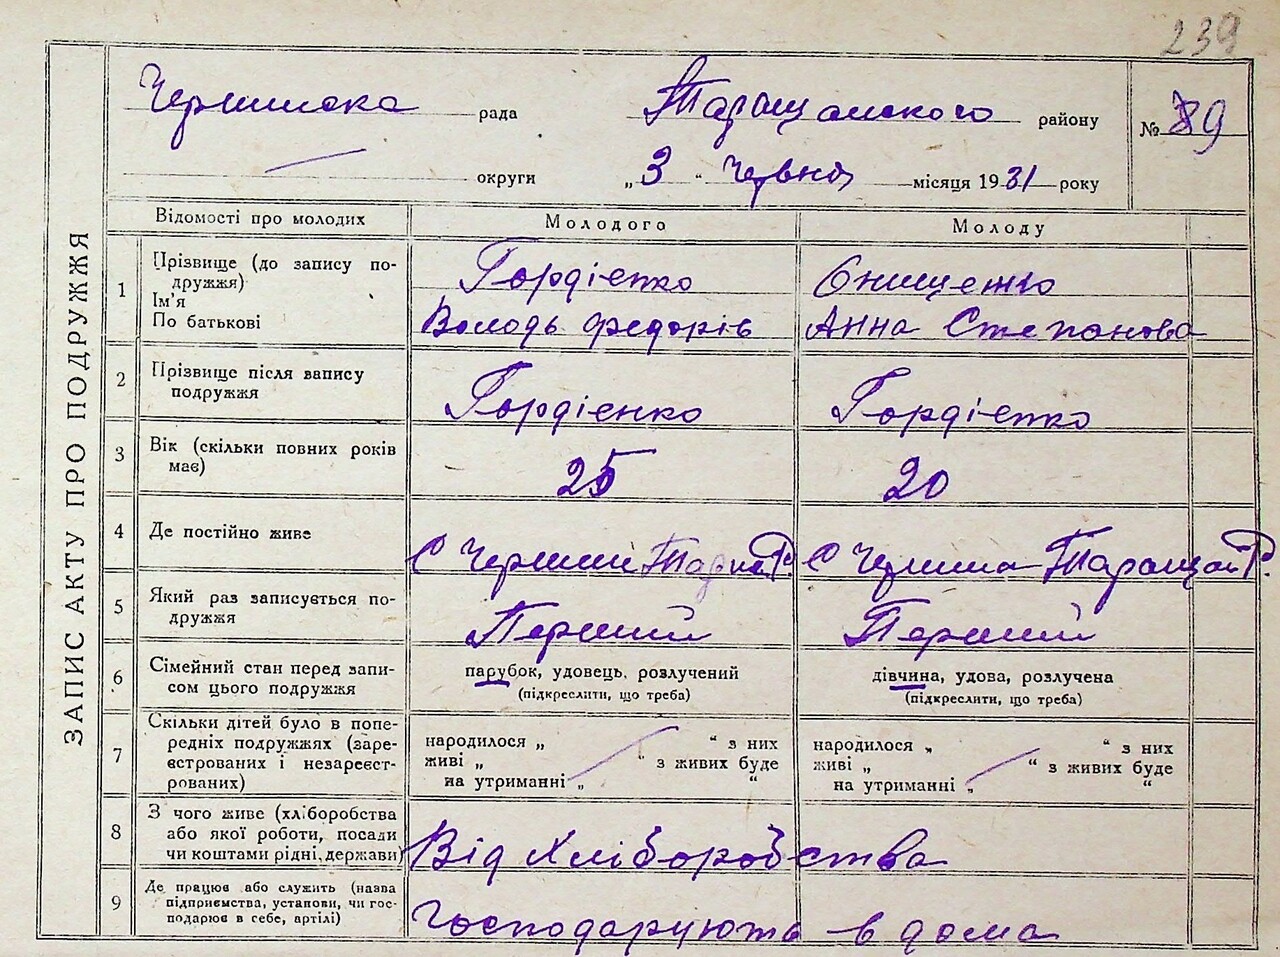 239
Чернинска рада Таращанского району № 89
округи „3“ Червня місяця 1931 року
ЗАПИС АКТУ ПРО ПОДРУЖЖЯ
Відомості про молодих Молодого Молоду
1 Прізвище (до запису по-
дружжя)
Ім'я
По батькові
Гордієнко
Володь Федорів
Онищенко
Анна Степанова
2 Прізвище після запису
подружжя
Гордієнко Гордієнко
3 Вік (скільки повних років
має)
25 20
4 Де постійно живе
С Р. С Таращан Р.
5 Який раз записується по-
дружжя
Перший Перший
6 Сімейний стан перед запи-
сом цього подружжя
парубок, удовець, розлучений
(підкреслити, що треба)
дівчина, удова, розлучена
(підкреслити, що треба)
7 Скільки дітей було в попе-
редніх подружжях (заре-
єстрованих і незареєст-
рованих)
народилося „ “ з них
живі „ “ з живих буде
на утриманні „
народилося „ “ з них
живі „ “ з живих буде
на утриманні „ “
8 З чого живе (хліборобства
або якої роботи, посади
чи коштами рідні, держави)
Від Хліборобства
9 Де працює або служить (назва
підприємства, установи, чи гос-
подарює в себе, артілі)
Господарують в дома